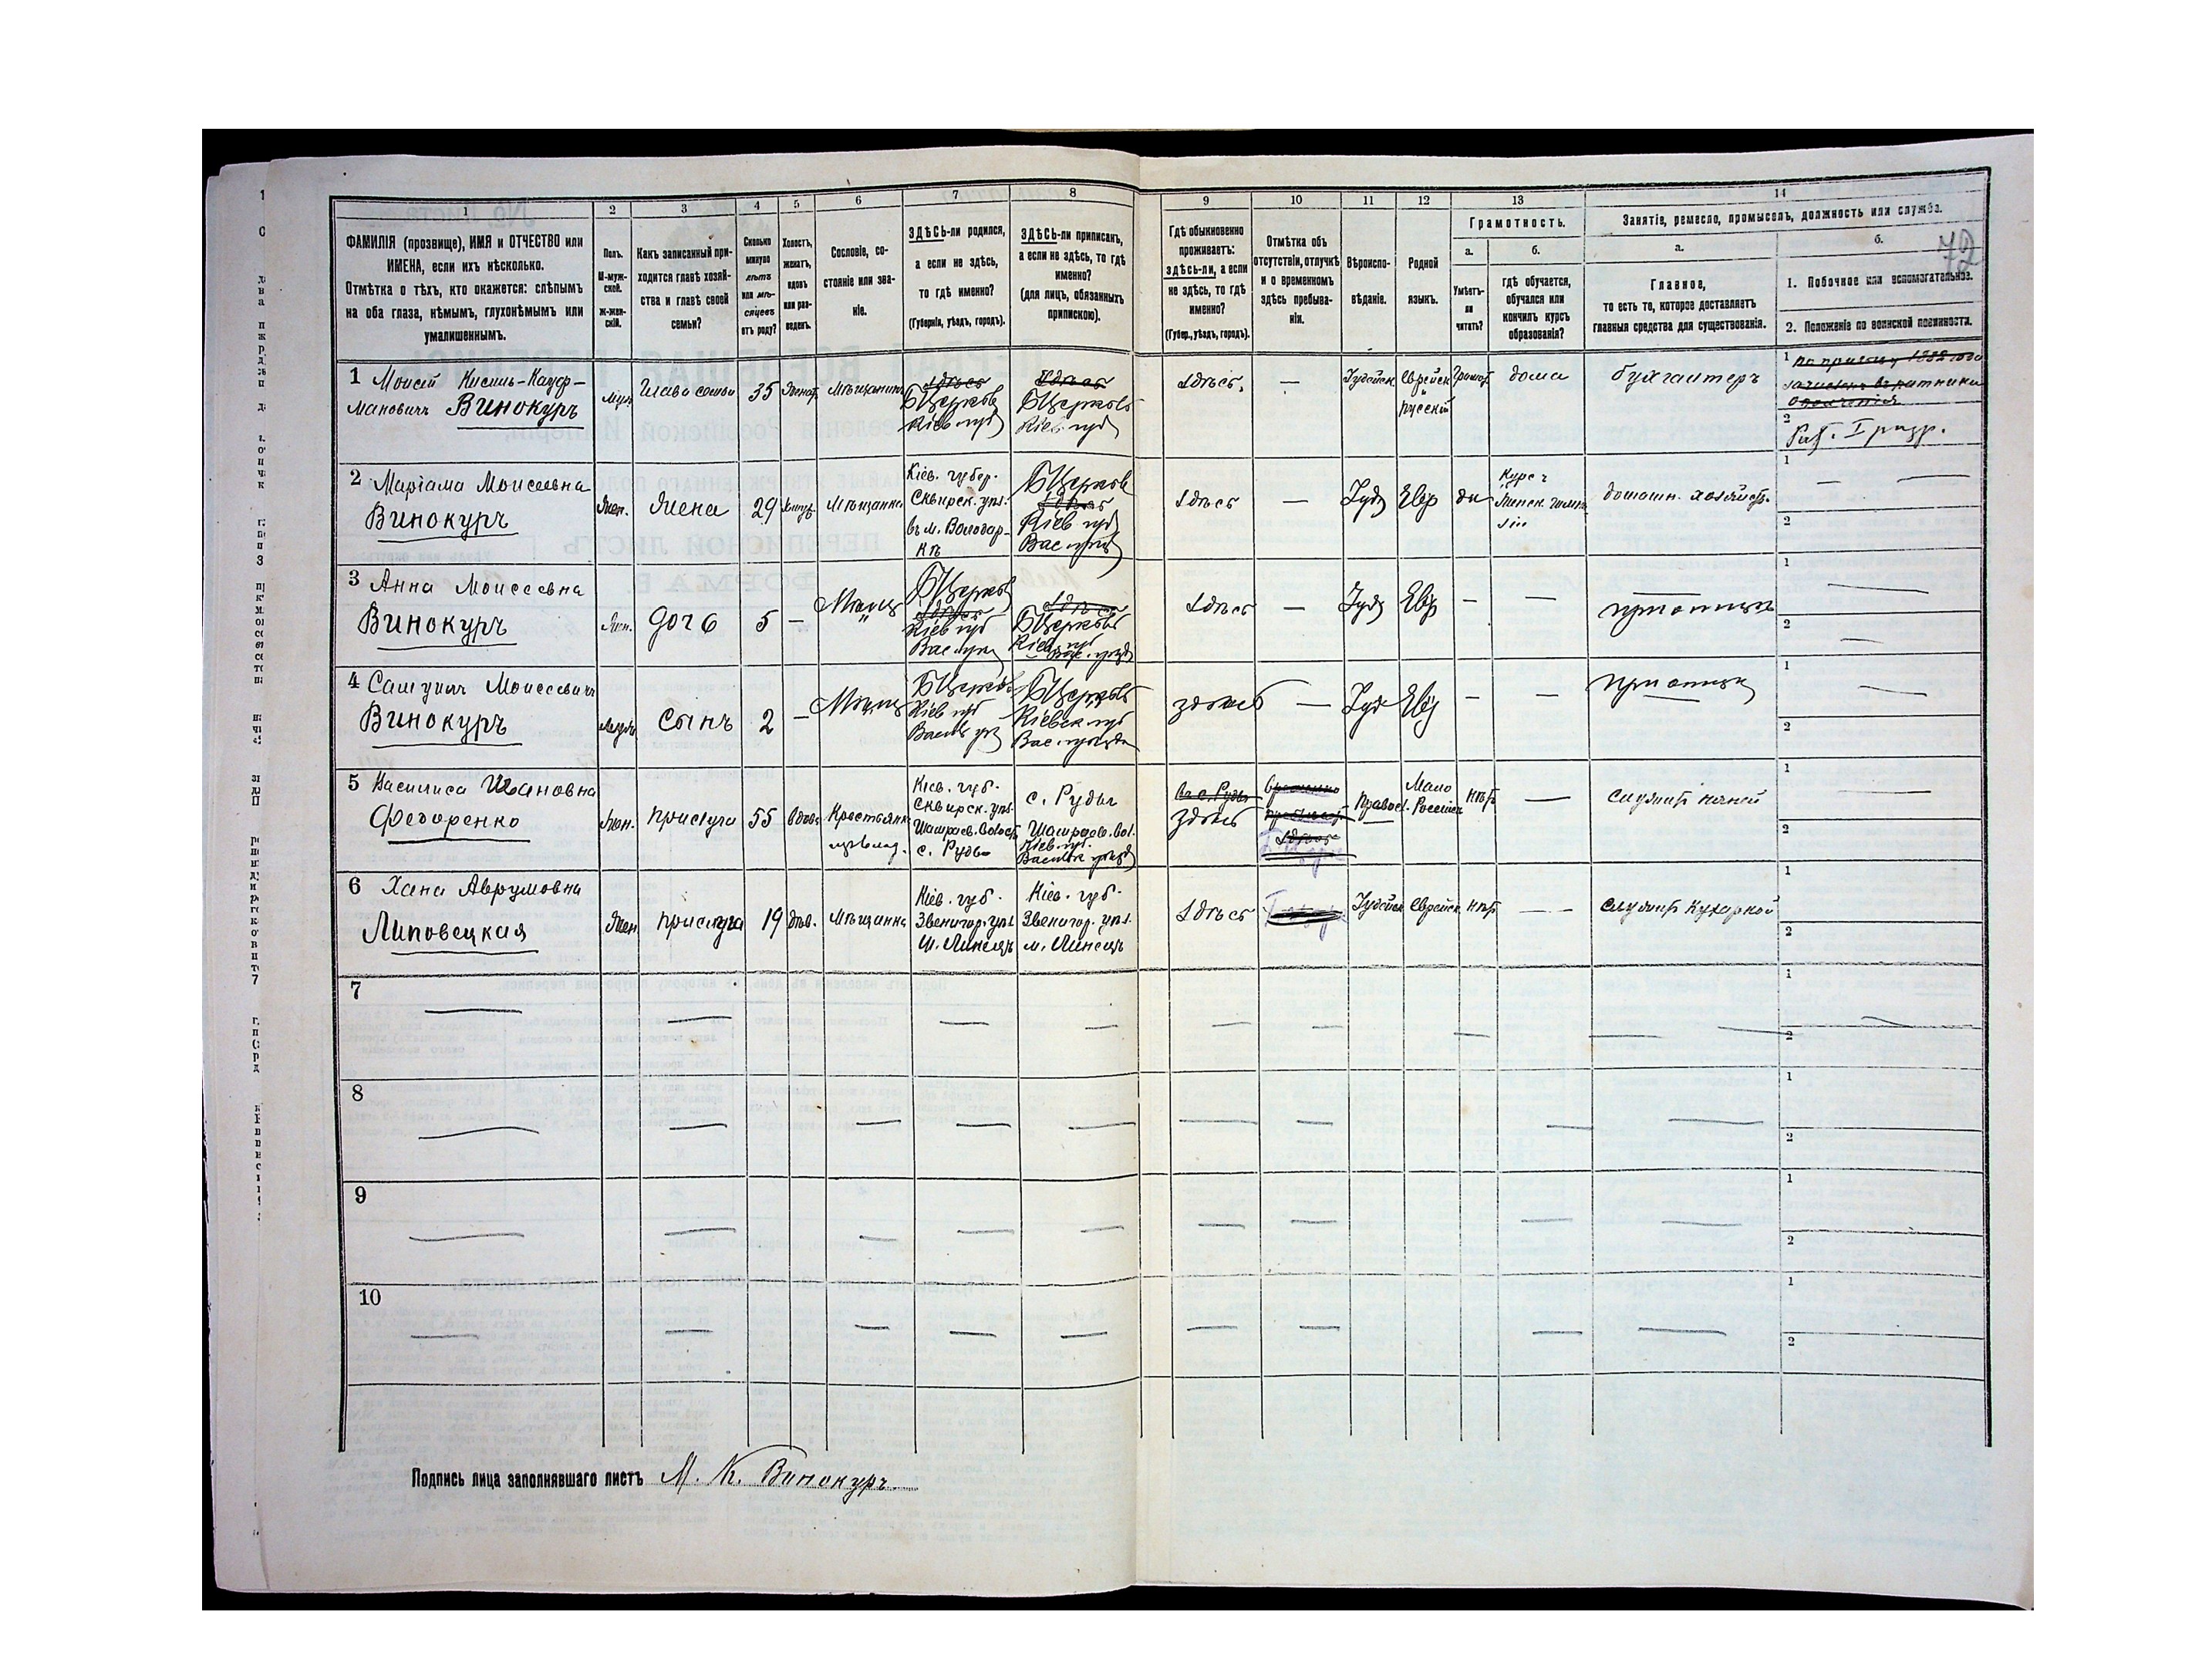 1 2 3 4 5 6 7 8 9 10 11 12 13 14
ФАМИЛІЯ (прозвище), ИМЯ и ОТЧЕСТВО или
ИМЕНА, если ихъ нѣсколько.
Отмѣтка о тѣхъ, кто окажется: слѣпымъ
на оба глаза, нѣмымъ, глухонѣмымъ или
умалишеннымъ.
Полъ.
М-муж-
ской.
Ж-жен-
скій.
Какъ записанный при-
ходится главѣ хозяй-
ства и главѣ своей
семьи?
Сколько
минуло
лѣтъ
или мѣ-
сяцевъ
отъ роду?
Холостъ,
женатъ,
вдовъ
или раз-
веденъ.
Сословіе, со-
стояніе или зва-
ніе.
ЗДѢСЬ-ли родился,
а если не здѣсь,
то гдѣ именно?
(Губернія, уѣздъ, городъ).
ЗДѢСЬ-ли приписанъ,
а если не здѣсь, то гдѣ
именно?
(для лицъ, обязанныхъ
припискою).
Гдѣ обыкновенно
проживаетъ:
здѣсь-ли, а если
не здѣсь, то гдѣ
именно?
(Губер., уѣздъ, городъ).
Отмѣтка объ
отсутствіи, отлучкѣ
и о временномъ
здѣсь пребыва-
ніи.
Вѣроиспо-
вѣданіе.
Родной
языкъ.
Грамотность.
а.
Умѣетъ-
ли
читать?
б.
гдѣ обучается,
обучался или
кончилъ курсъ
образованія?
Занятіе, ремесло, промыселъ, должность или служба.
а.
Главное,
то есть то, которое доставляетъ
главныя средства для существованія.
б.
1. Побочное или вспомогательное.
2. Положеніе по воинской повинности.
1 Моисей Кисиль-Кауф-
мановичъ Винокуръ
Муж
Глава семьи
35
Женат
Мѣщанинъ
Здѣсь
БЦерковь
Кіев. губ
Здѣсь
БЦерковь
Кіев. губ
Здѣсь.
—
Іудейск
Еврейск
и
русскій
Грамот.
дома
бухгалтеръ
1
2
2 Маріама Моисеевна
Винокуръ
Жен.
Жена
29
Мѣщанка
Кіев. губер.
Сквирск. уѣз.
въ м. Володар-
кѣ
БЦерковь
Здѣсь
Кіев губ
Вас уѣзд
Здѣсь
—
Іуд
Евр
да
Курсъ
Женск. гимна-
зіи
домашн. хозяйств.
1
2
3 Анна Моисеевна
Винокуръ
Жен.
дочь
5
—
Мѣщ
БЦерковь
Здѣсь
Кіев губ
Вас уѣзд
Здѣсь
БЦерковь
Кіев. губ
Вас. уѣзд
Здѣсь
—
Іуд
Евр
—
—
при отцѣ
1
2
4 Самуилъ Моисеевичъ
Винокуръ
Муж
Сынъ
2
—
Мѣщ
БЦерковь
Кіев губ
Васил уѣз
БЦерковь
Кіевск губ
Вас. уѣзда
здѣсь
—
Іуд
Евр
—
—
при отцѣ
1
2
5 Василиса Ивановна
Федоренко
Жен.
прислуга
55
вдова
Крестьянка
Кіев. губ.
Сквирск. уѣз.
Шамраев. Волост
с. Руды
с. Руды
Шамраев. Вол.
Кіев. губ.
Васильк уѣзд
Въ с. Руды
здѣсь
Временно
Здѣсь
Правосл.
Мало
Россійск
нѣтъ
—
служитъ няней
1
2
6 Хана Аврумовна
Липовецкая
Жен
прислуга
19
дѣв.
Мѣщанка
Кіев. губ.
Звенигор. уѣз.
м. Лисецъ
Кіев. губ.
Звенигор. уѣз.
м. Лисецъ
Здѣсь
Іудейск
Еврейск.
нѣтъ
—
служитъ кухаркой
1
2
7
1
2
8
1
2
9
1
2
10
1
2
Подпись лица заполнявшаго листъ М. К. Винокуръ